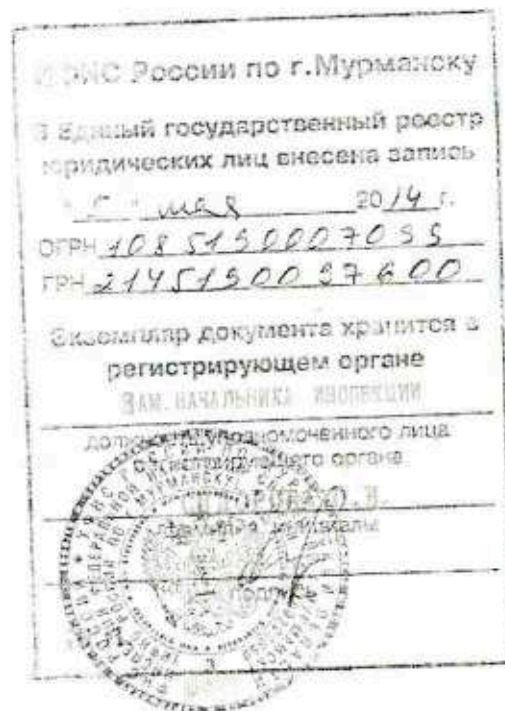 ИФНС России по г.Мурманску
В Единый государственный реестр
юридических лиц внесена запись
" 5 " мая 2014 г.
ОГРН 1085190007099
ГРН 2145190097600
Экземпляр документа хранится в
регистрирующем органе
ЗАМ. НАЧАЛЬНИКА ИНСПЕКЦИИ
должность уполномоченного лица
регистрирующего органа
фамилия, инициалы
подпись